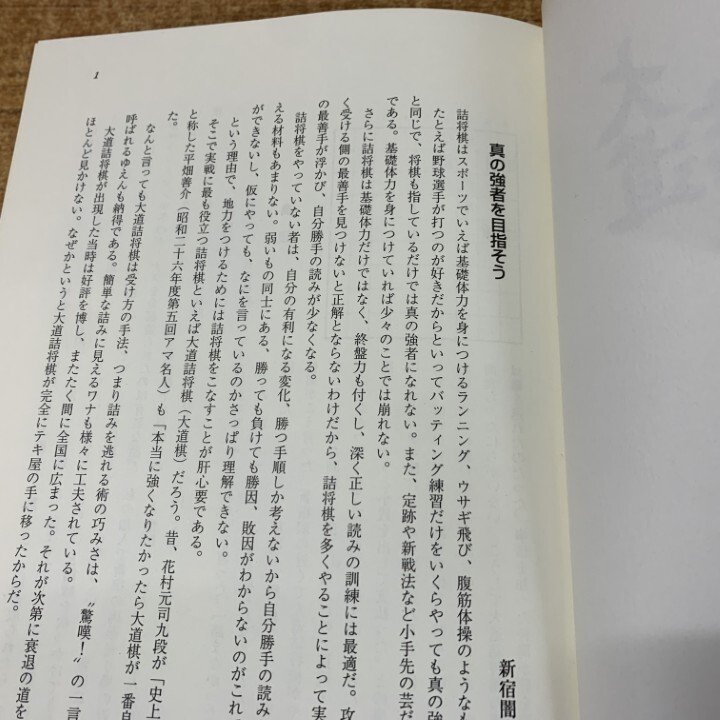 真の強者を目指そう
新宿闇
詰将棋はスポーツでいえば基礎体力を身につけるランニング、ウサギ飛び、腹筋体操のようなも
たとえば野球選手が打つのが好きだからといってバッティング練習だけをいくらやっても真の強
と同じで、将棋も指しているだけでは真の強者になれない。また、定跡や新戦法など小手先の芸だ
である。基礎体力を身につけていれば少々のことでは崩れない。
さらに詰将棋は基礎体力だけではなく、終盤力も付くし、深く正しい読みの訓練には最適だ。攻
く受ける側の最善手を見つけないと正解とならないわけだから、詰将棋を多くやることによって実
の最善手が浮かび、自分勝手の読みが少なくなる。
詰将棋をやっていない者は、自分の有利になる変化、勝つ手順しか考えないから自分勝手の読み
える材料もあまりない。弱いもの同士にある、勝っても負けても勝因、敗因がわからないのがこれ
ができないし、仮にやっても、なにを言っているのかさっぱり理解できない。
という理由で、地力をつけるためには詰将棋をこなすことが肝心要である。
そこで実戦に最も役立つ詰将棋といえば大道詰将棋（大道棋）だろう。昔、花村元司九段が「史上
と称した平畑善介（昭和二十六年度第五回アマ名人）も「本当に強くなりたかったら大道棋が一番良
た。
なんと言っても大道詰将棋は受け方の手法、つまり詰みを逃れる術の巧みさは、〝驚嘆！〟の一言
呼ばれるゆえんも納得である。簡単な詰みに見えるワナも様々に工夫されている。
大道詰将棋が出現した当時は好評を博し、またたく間に全国に広まった。それが次第に衰退の道を
ほとんど見かけない。なぜかというと大道詰将棋が完全にテキ屋の手に移ったからだ。
1